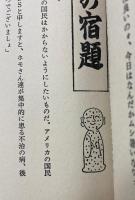 今日はなんだかム
の宿題
の国民はかからないようにしたいものだ。アメリカの国民
Sと申しますと、ホモさん達が集中的に患る不治の病、後
でございましょ